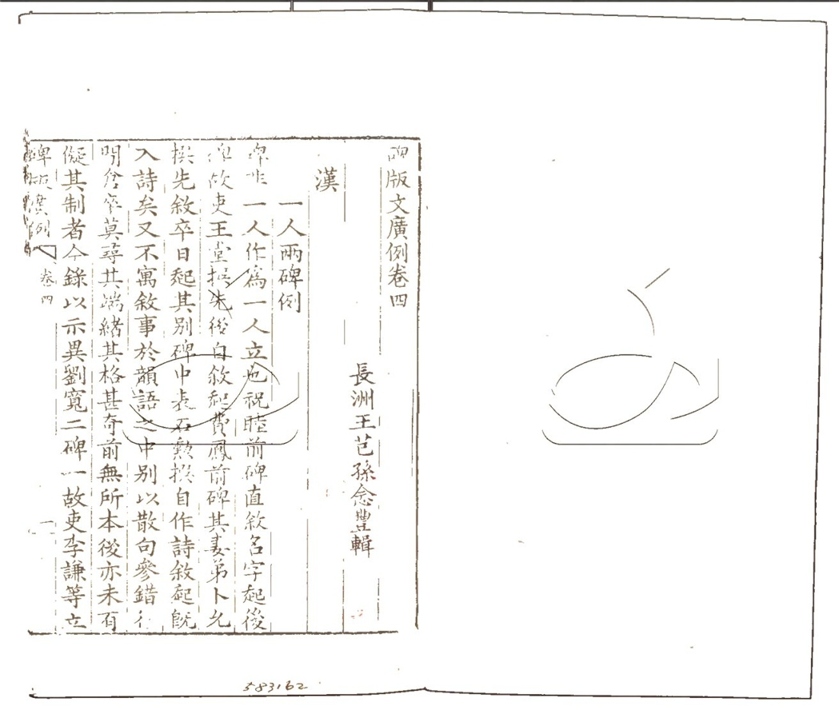 碑版文廣例卷四
長洲王芑孫念豐輯
漢
一人兩碑例
碑非一人作爲一人立也祝睦前碑直敘名字起後
碑故吏王堂撰先後自敘起費鳳前碑其妻弟卜允
撰先敘卒日起其別碑中表石勲撰自作詩敘起既
入詩矣又不寓敘事於韻語之中別以散句參錯行
明詹卒莫尋其端緒其格甚奇前無所本後亦未有
儗其制者今錄以示異劉寬二碑一故吏李謙等立
碑版廣例
卷四
一
583162